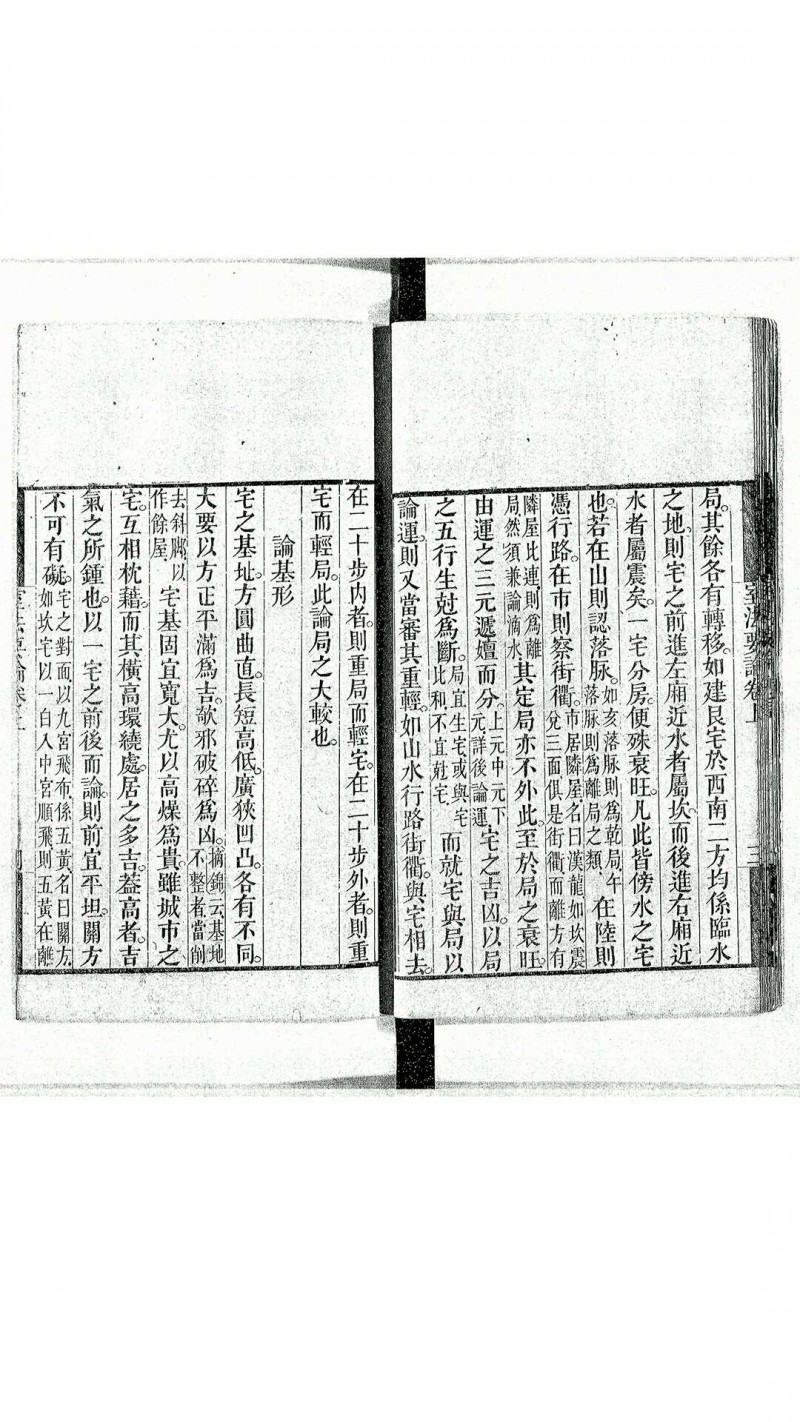 室法要論卷上
三
局。其餘各有轉移。如建艮宅於西南二方均係臨水
之地。則宅之前進左廂近水者屬坎。而後進右廂近
水者屬震矣。一宅分房。便殊衰旺。凡此皆傍水之宅
也。若在山則認落脉。如亥落脉則爲乾局。午落脉則爲離局之類。在陸則
憑行路。在市則察街衢。市居隣屋名曰漢龍如坎震兌三面俱是街衢而離方有
隣屋比連。則爲離局。然須兼論滴水其定局亦不外此。至於局之衰旺。
由運之三元遞嬗而分。上元中元下元。詳後論運宅之吉凶以局
之五行生尅爲斷。局宜生宅。或與宅比和。不宜尅宅。而就宅與局以
論運。則又當審其重輕。如山水行路街衢。與宅相去。
在二十步內者。則重局而輕宅。在二十步外者。則重
宅而輕局。此論局之大較也。
論基形
宅之基址。方圓曲直。長短高低。廣狹凹凸。各有不同。
大要以方正平滿爲吉。欹邪破碎爲凶。摘錦云基地不整者。當削
去斜脚。以作餘屋。宅基固宜寬大。尤以高燥爲貴雖城市之
宅。互相枕藉。而其橫高環繞處。居之多吉。葢高者。吉
氣之所鍾也。以一宅之前後而論。則前宜平坦。關方
不可有礙。宅之對面。以九宮飛布。係五黃。名曰關方。如坎宅以一白入中宮順飛則五黃在離
室法要論卷上